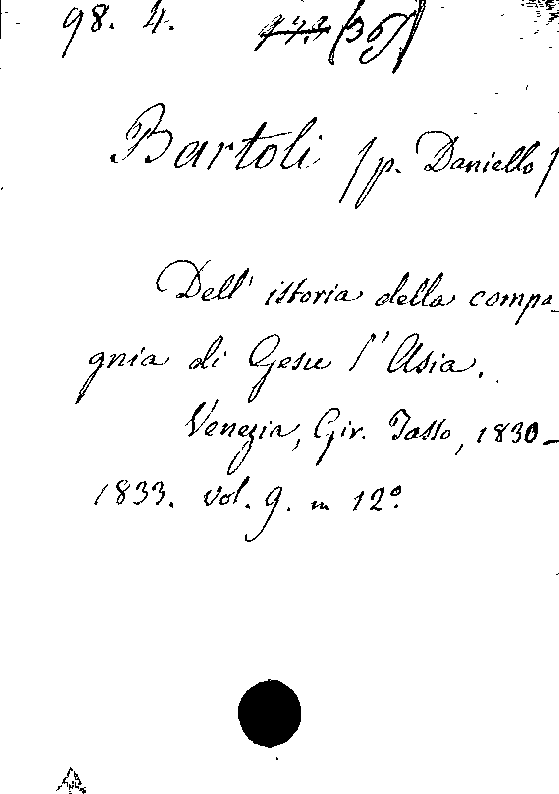 98. 4. 973 (36)
Bartoli (p. Daniello)
Dell' istoria della compa-
gnia di Gesu l' Asia.
Venezia, Gir. Tasso, 1830-
1833. vol. 9. in 12º